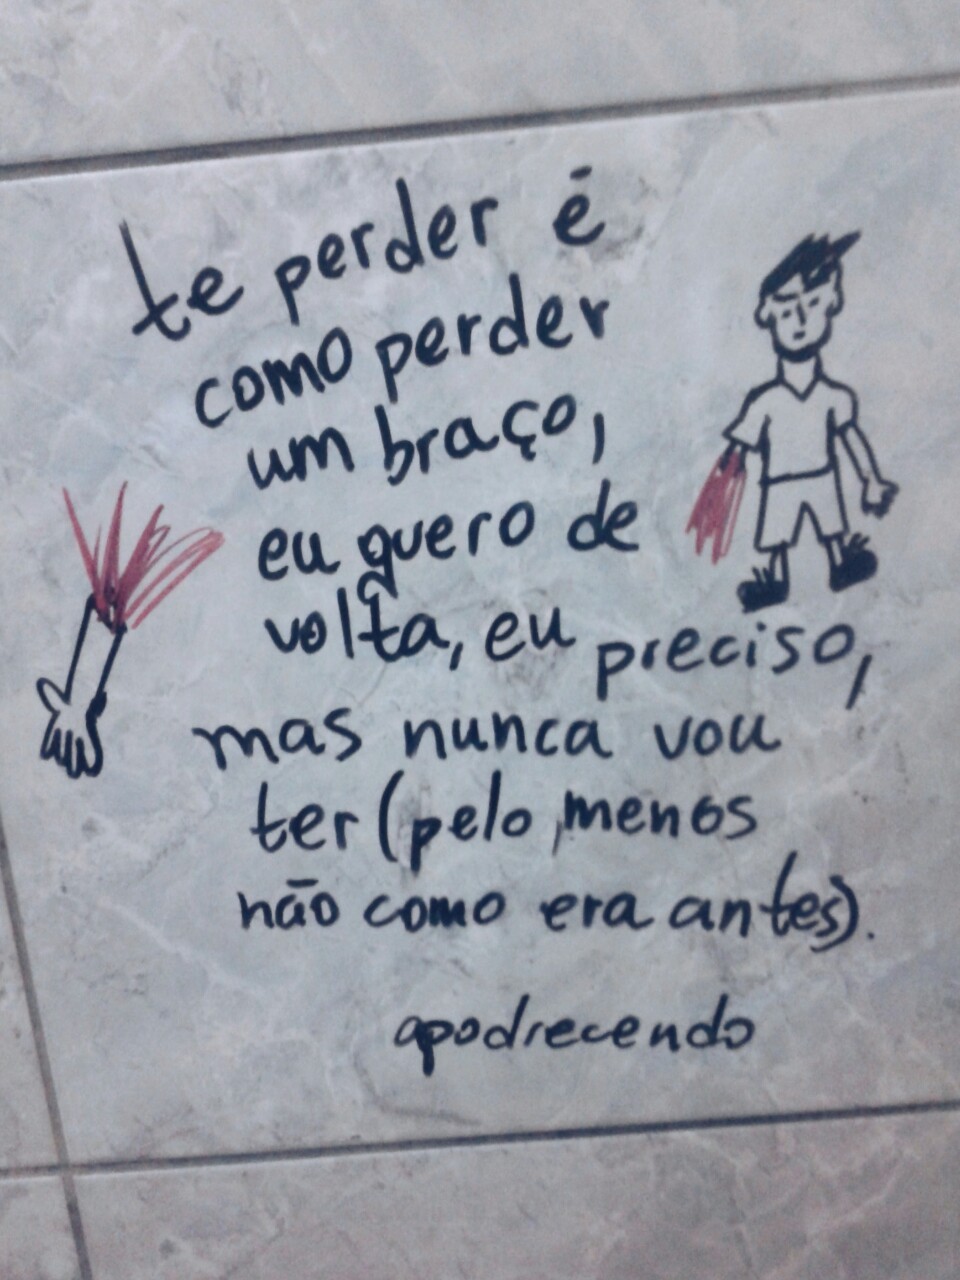 te perder é
como perder
um braço,
eu quero de
volta, eu preciso,
mas nunca vou
ter (pelo menos
não como era antes).
apodrecendo